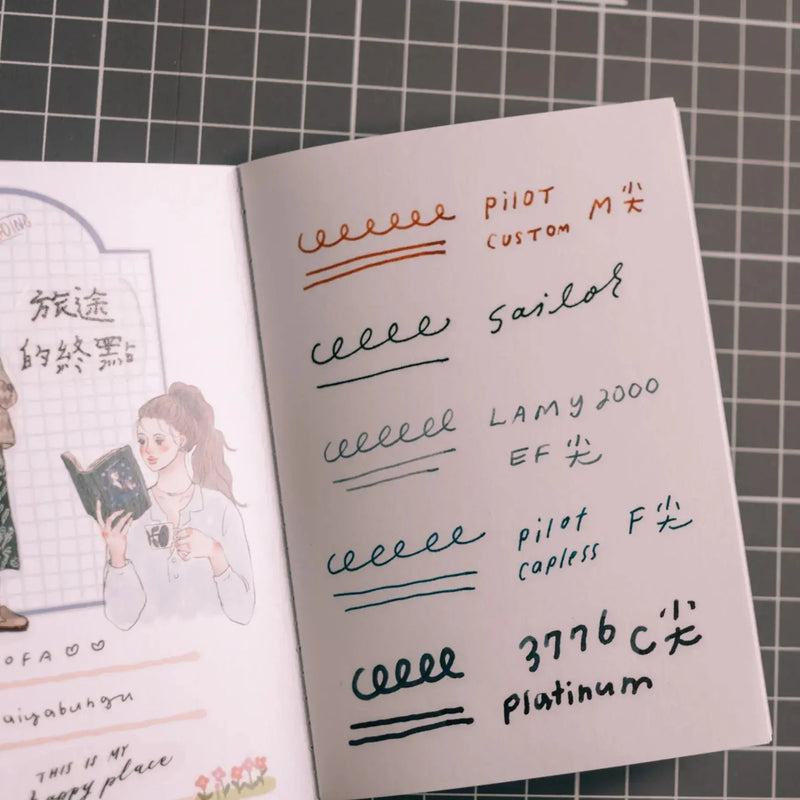 旅途
的終點
OFA
aiyabungu
THIS IS MY
happy place
PILOT
CUSTOM M尖
Sailor
LAMY 2000
EF 尖
pilot
capless F尖
3776 C尖
platinum